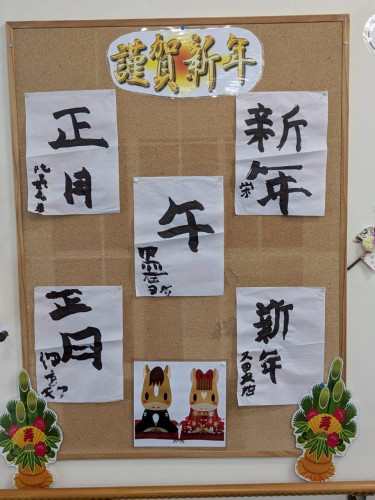 謹賀新年
正月
新年
栄
午
正月
新年
寿
寿